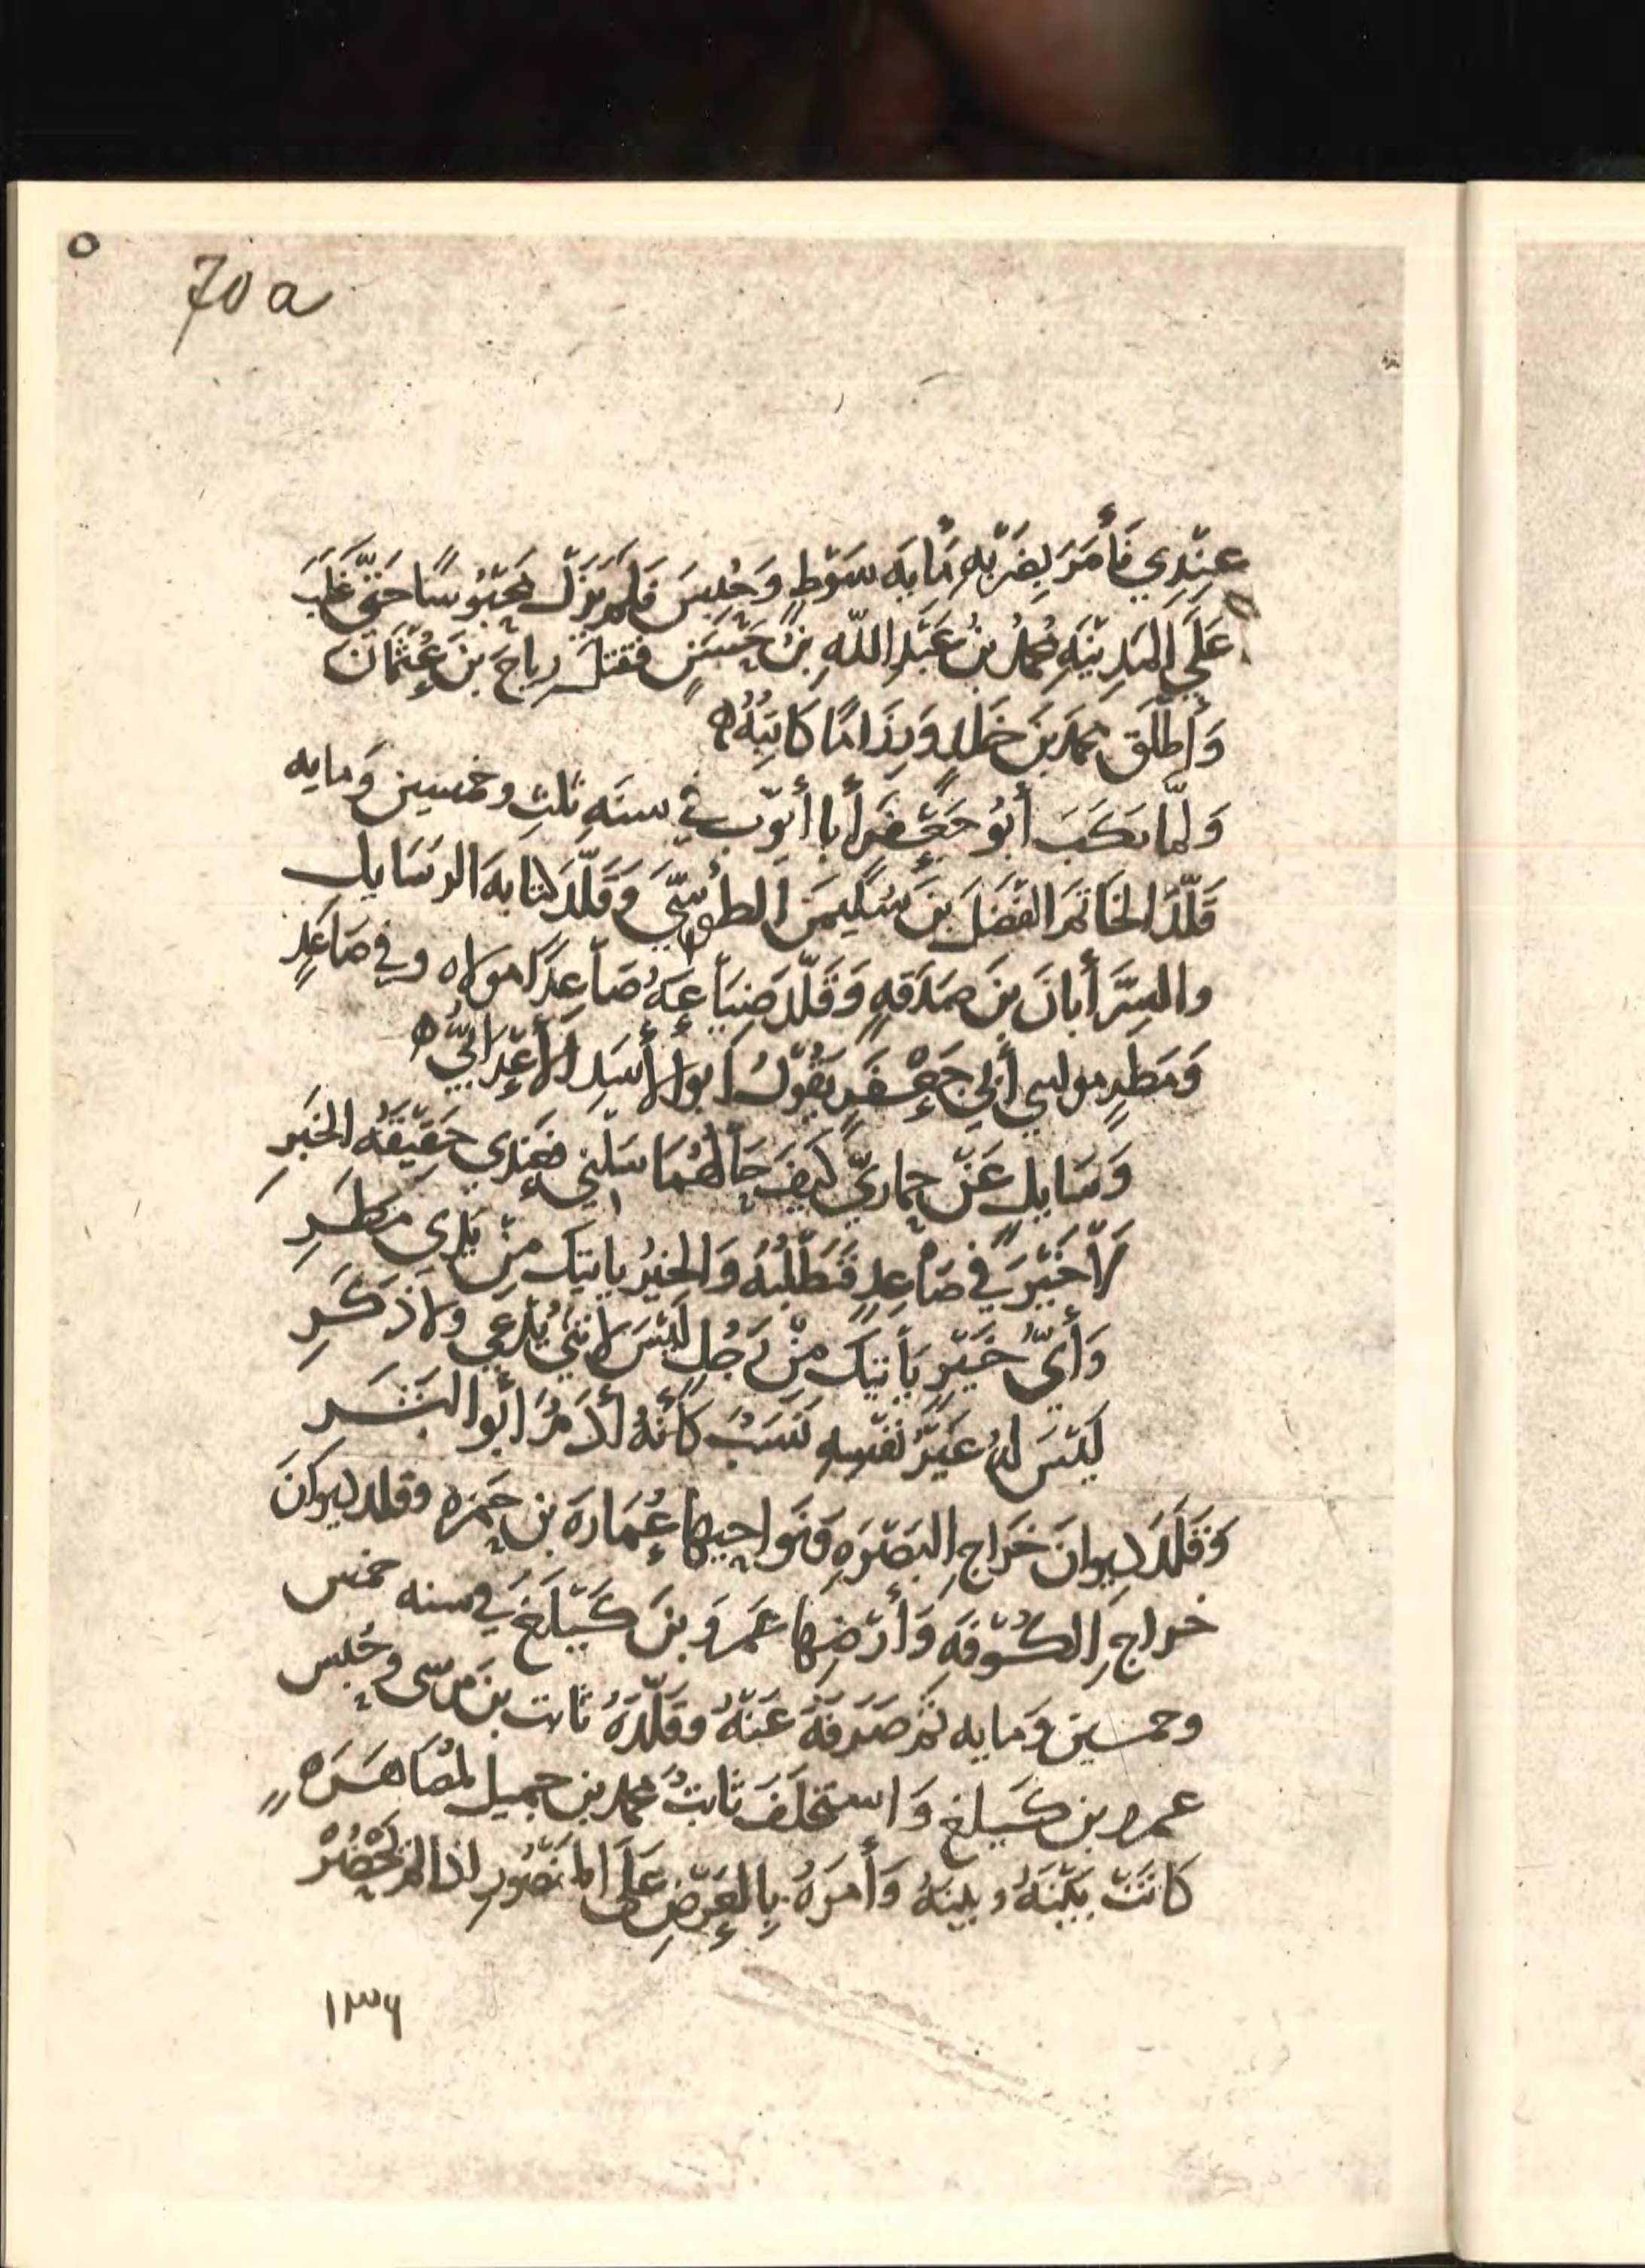 70 a
عِنْدِي فَأَمَرَ بِضَرْبِهِ مِايَه سَوْطٍ وَحُبِسَ فَلَم يَزَلْ مَحْبُوسًا حَتّى غَلَبَ
عَلَى المَدِيْنَهِ مُحمدُ بنُ عَبْدِ اللّهِ بنِ حَسَنٍ فقتل رِياحَ بنَ عُثْمَانَ
وَأَطْلَق محمدَ بنَ خَلد وَرِزَامًا كَاتِبَهُ ه
وَلمّا نكَبَ أَبُو جَعْفَرٍ أَبا أَيّوْبَ في سنَهِ ثلثِ وخمسين وَمايه
قَلّدَ الخَاتَمَ الفَضْلَ بنَ سُلَيمَنَ الطُوسِّيَ وَقَلّدَ كتابهَ الرسَايل
والسِرَّ أَبانَ بنَ صَدَقهٍ وَقَلّدَ ضِيَاعِهُ صَاعِدًا مولاه وفي صَاعدٍ
وَمَطَرٍ مولى أَبي جَعْفَرٍ يَقُوْلُ أَبوا لأَسَدِ الأَعْرَابيُّ ه
وَسَايلٍ عَنْ حِمارَيّ كَيفَ حَالُهُمَا سَلْني فعِنْدِي حَقِيْقَهُ الخَبَرِ
لاَ خَيْرَ في صَاعِدٍ فَتَطْلُبَهُ وَالخيْرُ ياتيكَ مِنْ يَدي مَطَرِ
وَأَيُّ خَيْرٍ يَأتيكَ مِنْ رَجُلٍ لَيْسَ لانثَى يُدْعى ولا ذَكَرِ
لَيْسَ لهُ غَيرَ نَفْسِهِ نَسَبٌ كَأَنّهُ أدَمُ أَبُو البَشَرِ
وَقَلّدَ ديوانَ خَراجِ البَصْرَهِ وَنَواحِيها عُمَارَهَ بن حَمزه وقلد ديوانَ
خراجِ الكُوْفَهِ وَأَرْضِها عَمرَو بنَ كَيْلَغَ في سنه خمس
وخمسين وَمايه ثم صَرَفَهُ عَنْهُ وقَلّدَهُ ثابت بن موسى وحُبِس
عمرو بن كَيلغ وَاستخلَفَ ثابتُ محمد بن جميل لمُصَاهَرَه
كانتْ بَيْنَهُ وبينهُ وَأمرَهُ بِالعَرْضِ عَلَى المَنصُورِ اذا لم يَحْضُرْ
١٣٦